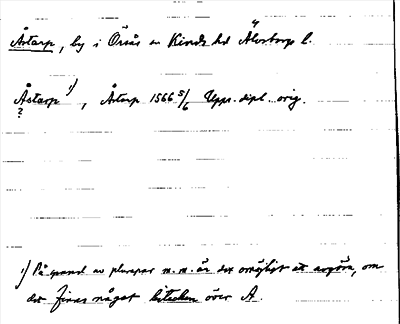 Åstarp, by i Örsås sn Kinds hd Älvsborgs l.
Åstarp 1), Åstarp 1566 5/6 Upps. dipl. orig.
?
1) På grund av plumpar m.m. är det omöjligt att avgöra, om
det finns något tecken över A.